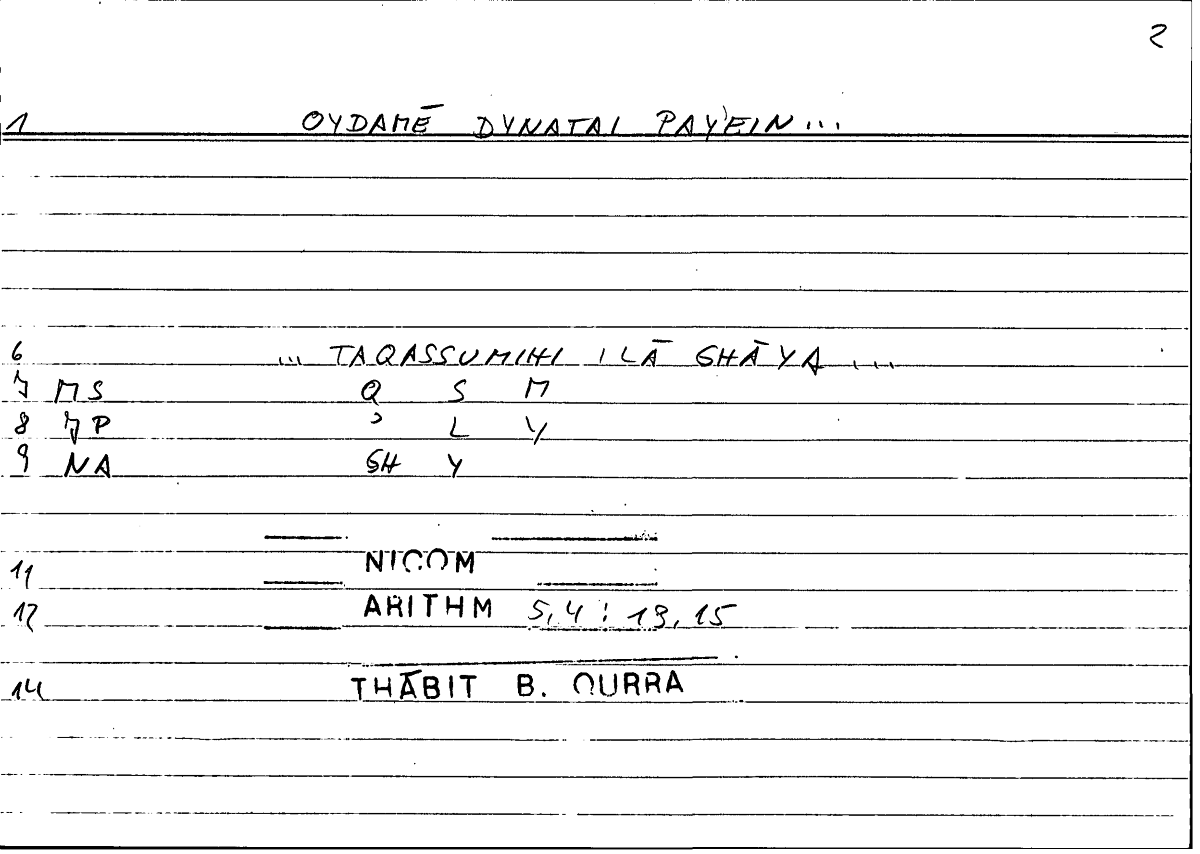 2
1 OYDAMĒ DYNATAI PAY'EIN...
6 ... TAQASSUMIHI ILĀ GHĀYA ...
7 MS Q S M
8 JP ʾ L Y
9 NA GH Y
11 NICOM
12 ARITHM 5,4 : 13,15
14 THĀBIT B. QURRA